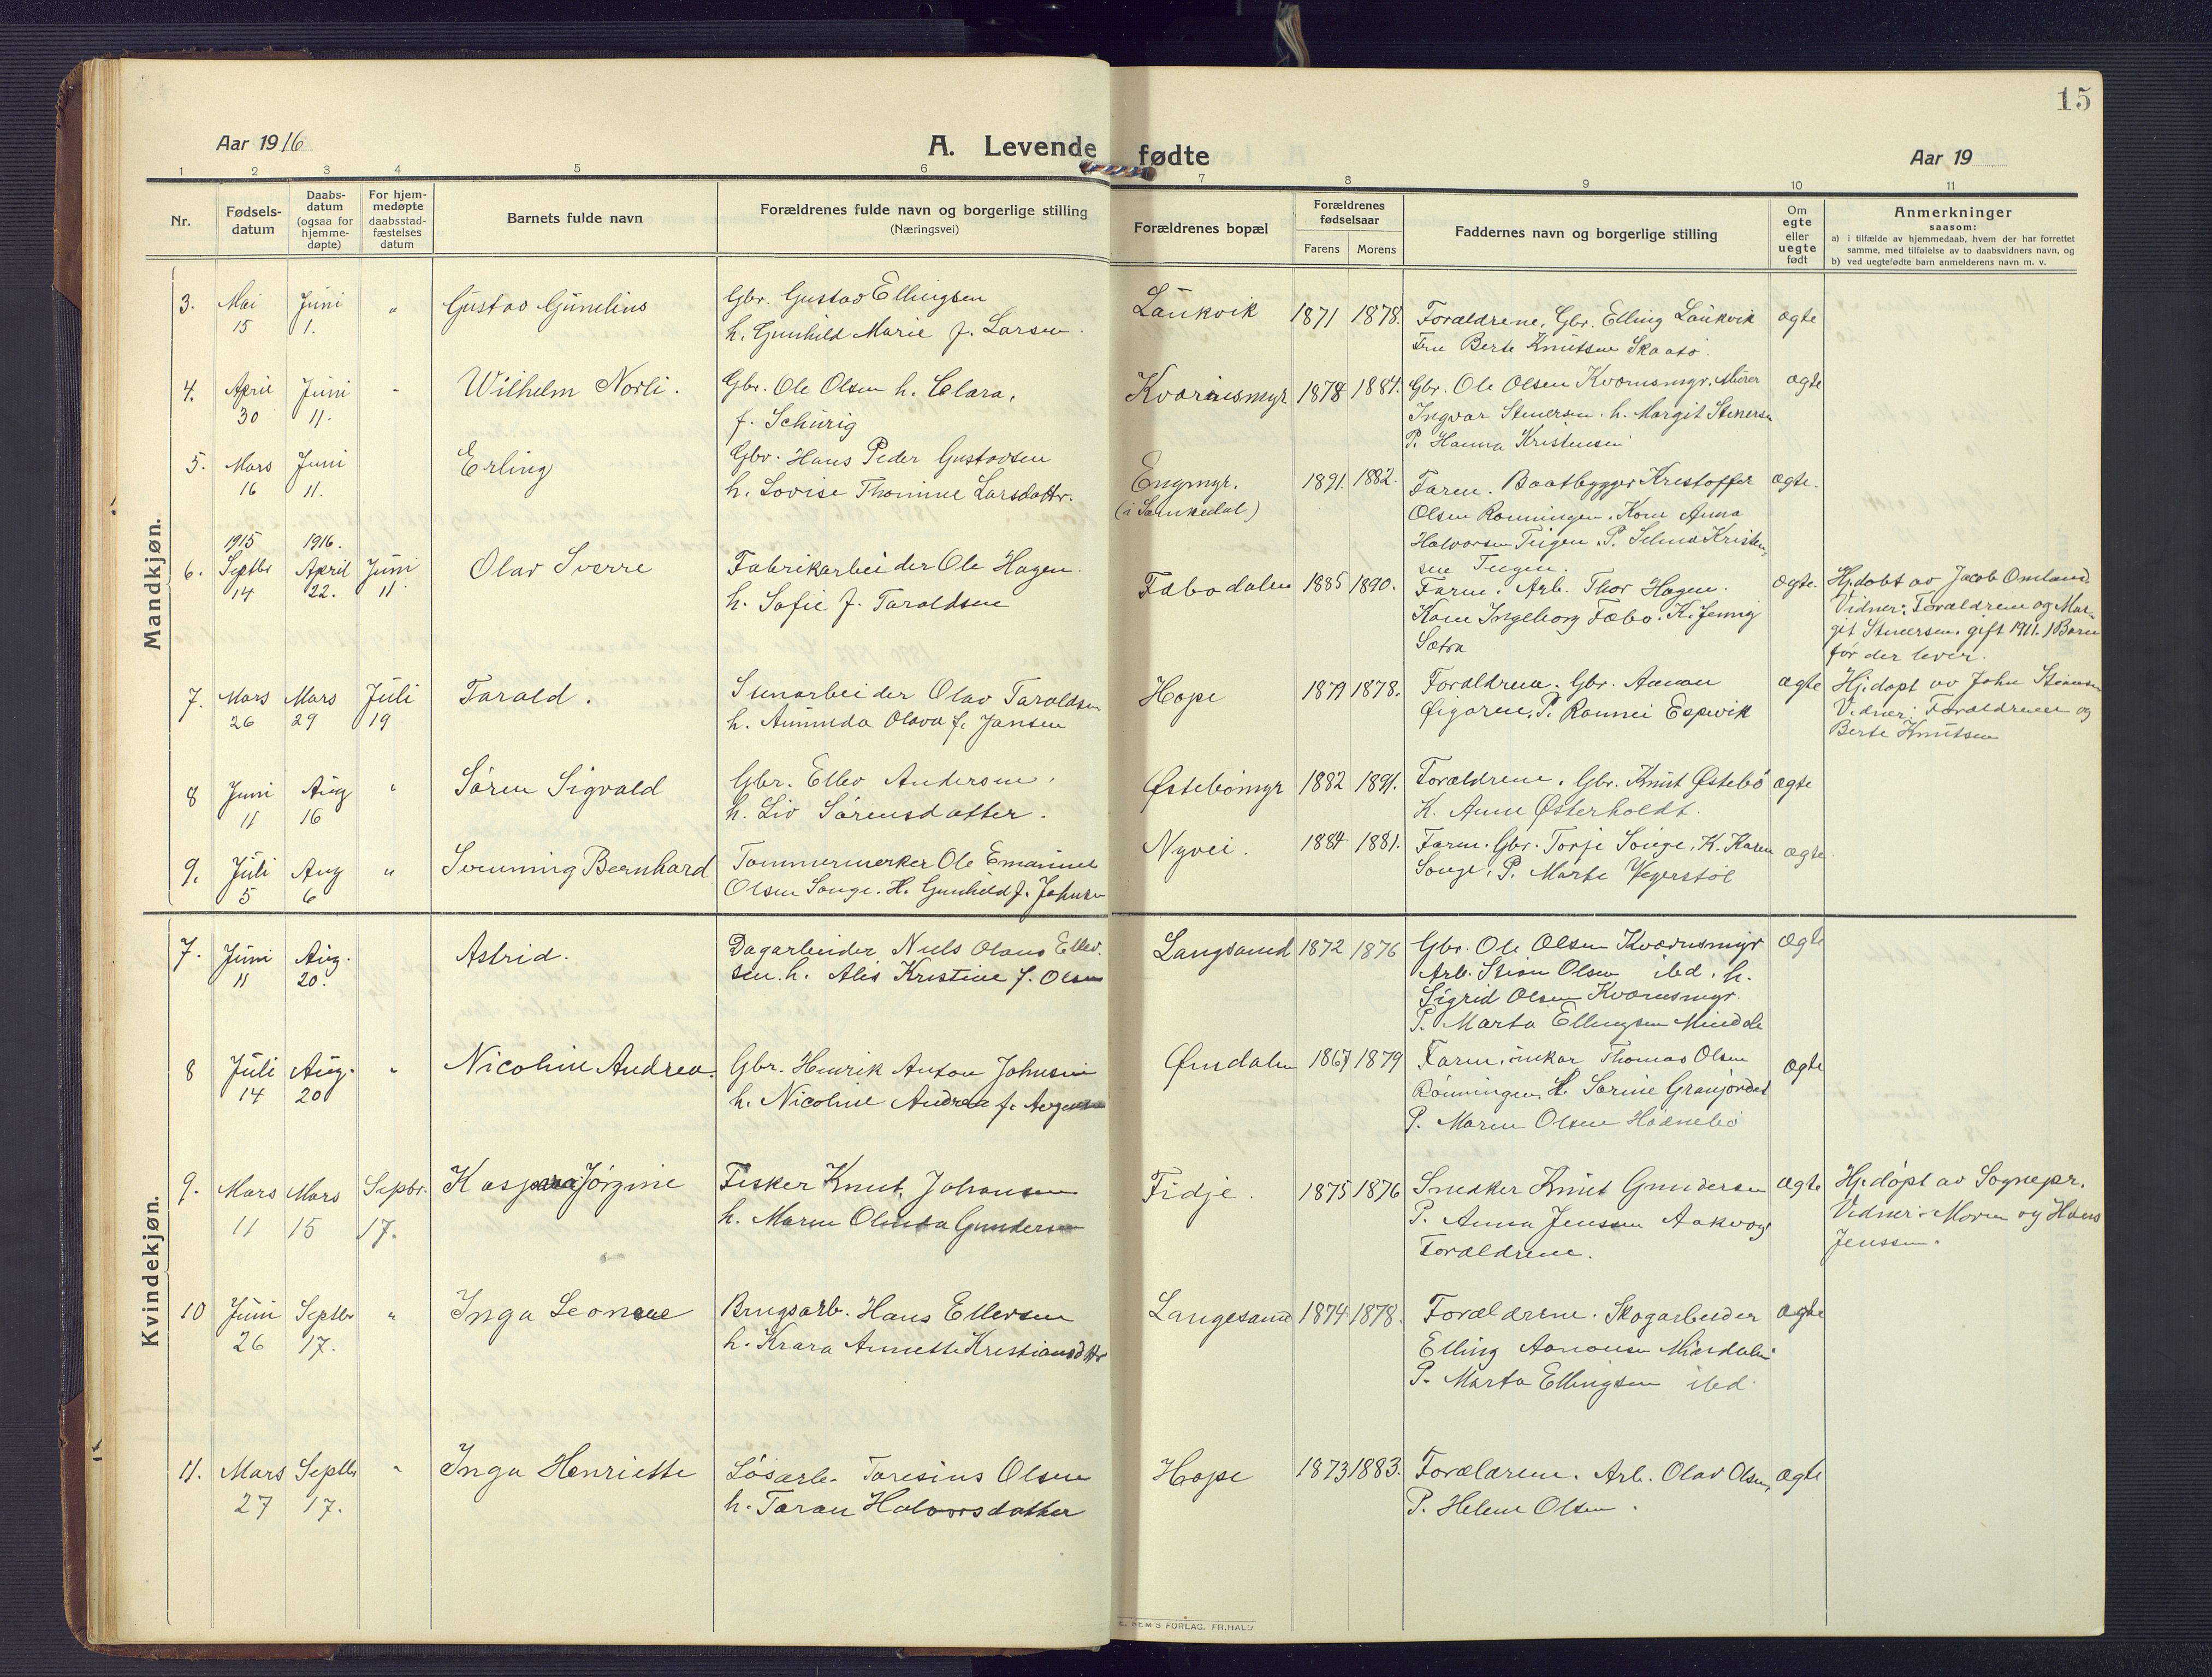 15
Aar 1916
A. Levende fødte
Aar 19
1 2 3 4 5 6 7 8 9 10 11
Nr.
Fødsels-
datum
Daabs-
datum
(ogsaa for
hjemme-
døpte)
For hjem-
medøpte
daabsstad-
fæstelses
datum
Barnets fulde navn
Forældrenes fulde navn og borgerlige stilling
(Næringsvei)
Forældrenes bopæl
Forældrenes
fødselsaar
Farens Morens
Faddernes navn og borgerlige stilling
Om
egte
eller
uegte
født
Anmerkninger
saasom:
a) i tilfælde av hjemmedaab, hvem der har forrettet
samme, med tilføielse av to daabsvidners navn, og
b) ved uegtefødte barn anmelderens navn m. v.
Mandkjøn.
3. Mai 15 Juni 1. "
Gustav Gunelius
Gbr. Gustav Ellingsen
h. Gunhild Marie f. Larsen.
Laukvik 1871 1878.
Forældrene, Gbr. Elling Laukvik
Fru Berte Knutsen Skaatø.
ægte
4. April 30 Juni 11. "
Wilhelm Norli.
Gbr. Ole Olsen h. Clara,
f. Schurig
Kvernsmyr 1878 1884.
Gbr. Ole Olsen Kvernsmyr, Murer
Ingvar Stenersen. h. Margit Stenersen
P. Hanna Kristensen
ægte
5. Mars 16 Juni 11.
Erling
Gbr. Hans Peder Gustavsen
h. Lovise Thomine Larsdattr.
Engmyr.
(i Sannkedal)
1891. 1882.
Faren. Baatbygger Kristoffer
Olsen Rønningen. Kone Anna
Halvorsen Teigen. P. Selma Kristen-
sen Teigen.
ægte.
6. 1915 Septbr 14 1916. April 22. Juni 11
Olav Sverre
Fabrikarbeider Ole Hagen.
h. Sofie f. Taraldsen
Fæbodalen 1885 1890.
Faren. Arb. Thor Hagen.
Kone Ingeborg Fæbo. K. Jenny
Sætra
ægte.
Hj.døbt av Jacob Omland
Vidner: Forældrene og Mar-
git Stenersen. gift 1911. 1 Barn
før der lever.
7. Mars 26 Mars 29 Juli 19
Tarald.
Stenarbeider Olav Taraldsen
h. Amunda Olava f. Jansen
Hope 1879 1878.
Forældrene. Gbr. Aanon
Øigaren. P. Rannei Espevik
ægte
Hj.døpt av John Steansen
Vidner: Forældrene og
Berte Knutsen
8 Juni 11 Aug 16 "
Søren Sigvald
Gbr. Ellev Andersen.
h. Liv Sørensdatter.
Østebømyr 1882 1891.
Forældrene. Gbr. Knut Østebø
K. Anne Østerholdt.
ægte
9. Juli 5 Aug 6 "
Svenning Bernhard
Tømmermerker Ole Emanuel
Olsen Songe. H. Gunhild f. Johnsen
Nyvei. 1884 1881.
Faren. Gbr. Torje Songe. K. Karen
Songe. P. Marte Vegerstøl
ægte
Kvindekjøn.
7. Juni 11 Aug. 20.
Astrid.
Dagarbeider Niels Olaus Ellev-
sen. h. Alis Kristine f. Olsen
Langsand 1872 1876
Gbr. Ole Olsen Kvernsmyr
Arb. Stian Olsen ibd. h.
Sigrid Olsen Kvernsmyr.
P. Marta Ellingsen Mindale
ægte
8 Juli 14 Aug. 20 "
Nicoline Andrea.
Gbr. Henrik Anton Johnsen
h. Nicoline Andrea f. Aagesen
Ørsdalen 1867 1879
Faren, unkar Thomas Olsen
Rønningen, H. Sørine Granjordet
P. Maren Olsen Hødnebø
ægte
9. Mars 11 Mars 15 Septbr. 17.
Kaspara Jørgine
Fisker Knut Johansen
h. Maren Olinda Gundersen
Fidje. 1875 1876
Snedker Knut Gundersen
P. Anna Jenssen Aakvaag
Forældrene.
ægte
Hj.døpt av Sognepr.
Vidner: Moren og Hans
Jenssen.
10 Juni 26 Septbr 17. "
Inga Leonene
Brugsarb. Hans Ellevsen
h. Krara Annette Kristiansdttr
Langesand 1874 1878.
Forældrene. Skogarbeider
Elling Aanonsen Mindalen
P. Marta Ellingsen ibd.
ægte
11. Mars 27 Septbr 17. "
Inga Henriette
Løsarb. Taresius Olsen
h. Taran Halvorsdatter
Hope 1873 1883.
Forældrene. Arb. Olav Olsen,
P. Helene Olsen.
ægte
E. SEM'S FORLAG, FR.HALD